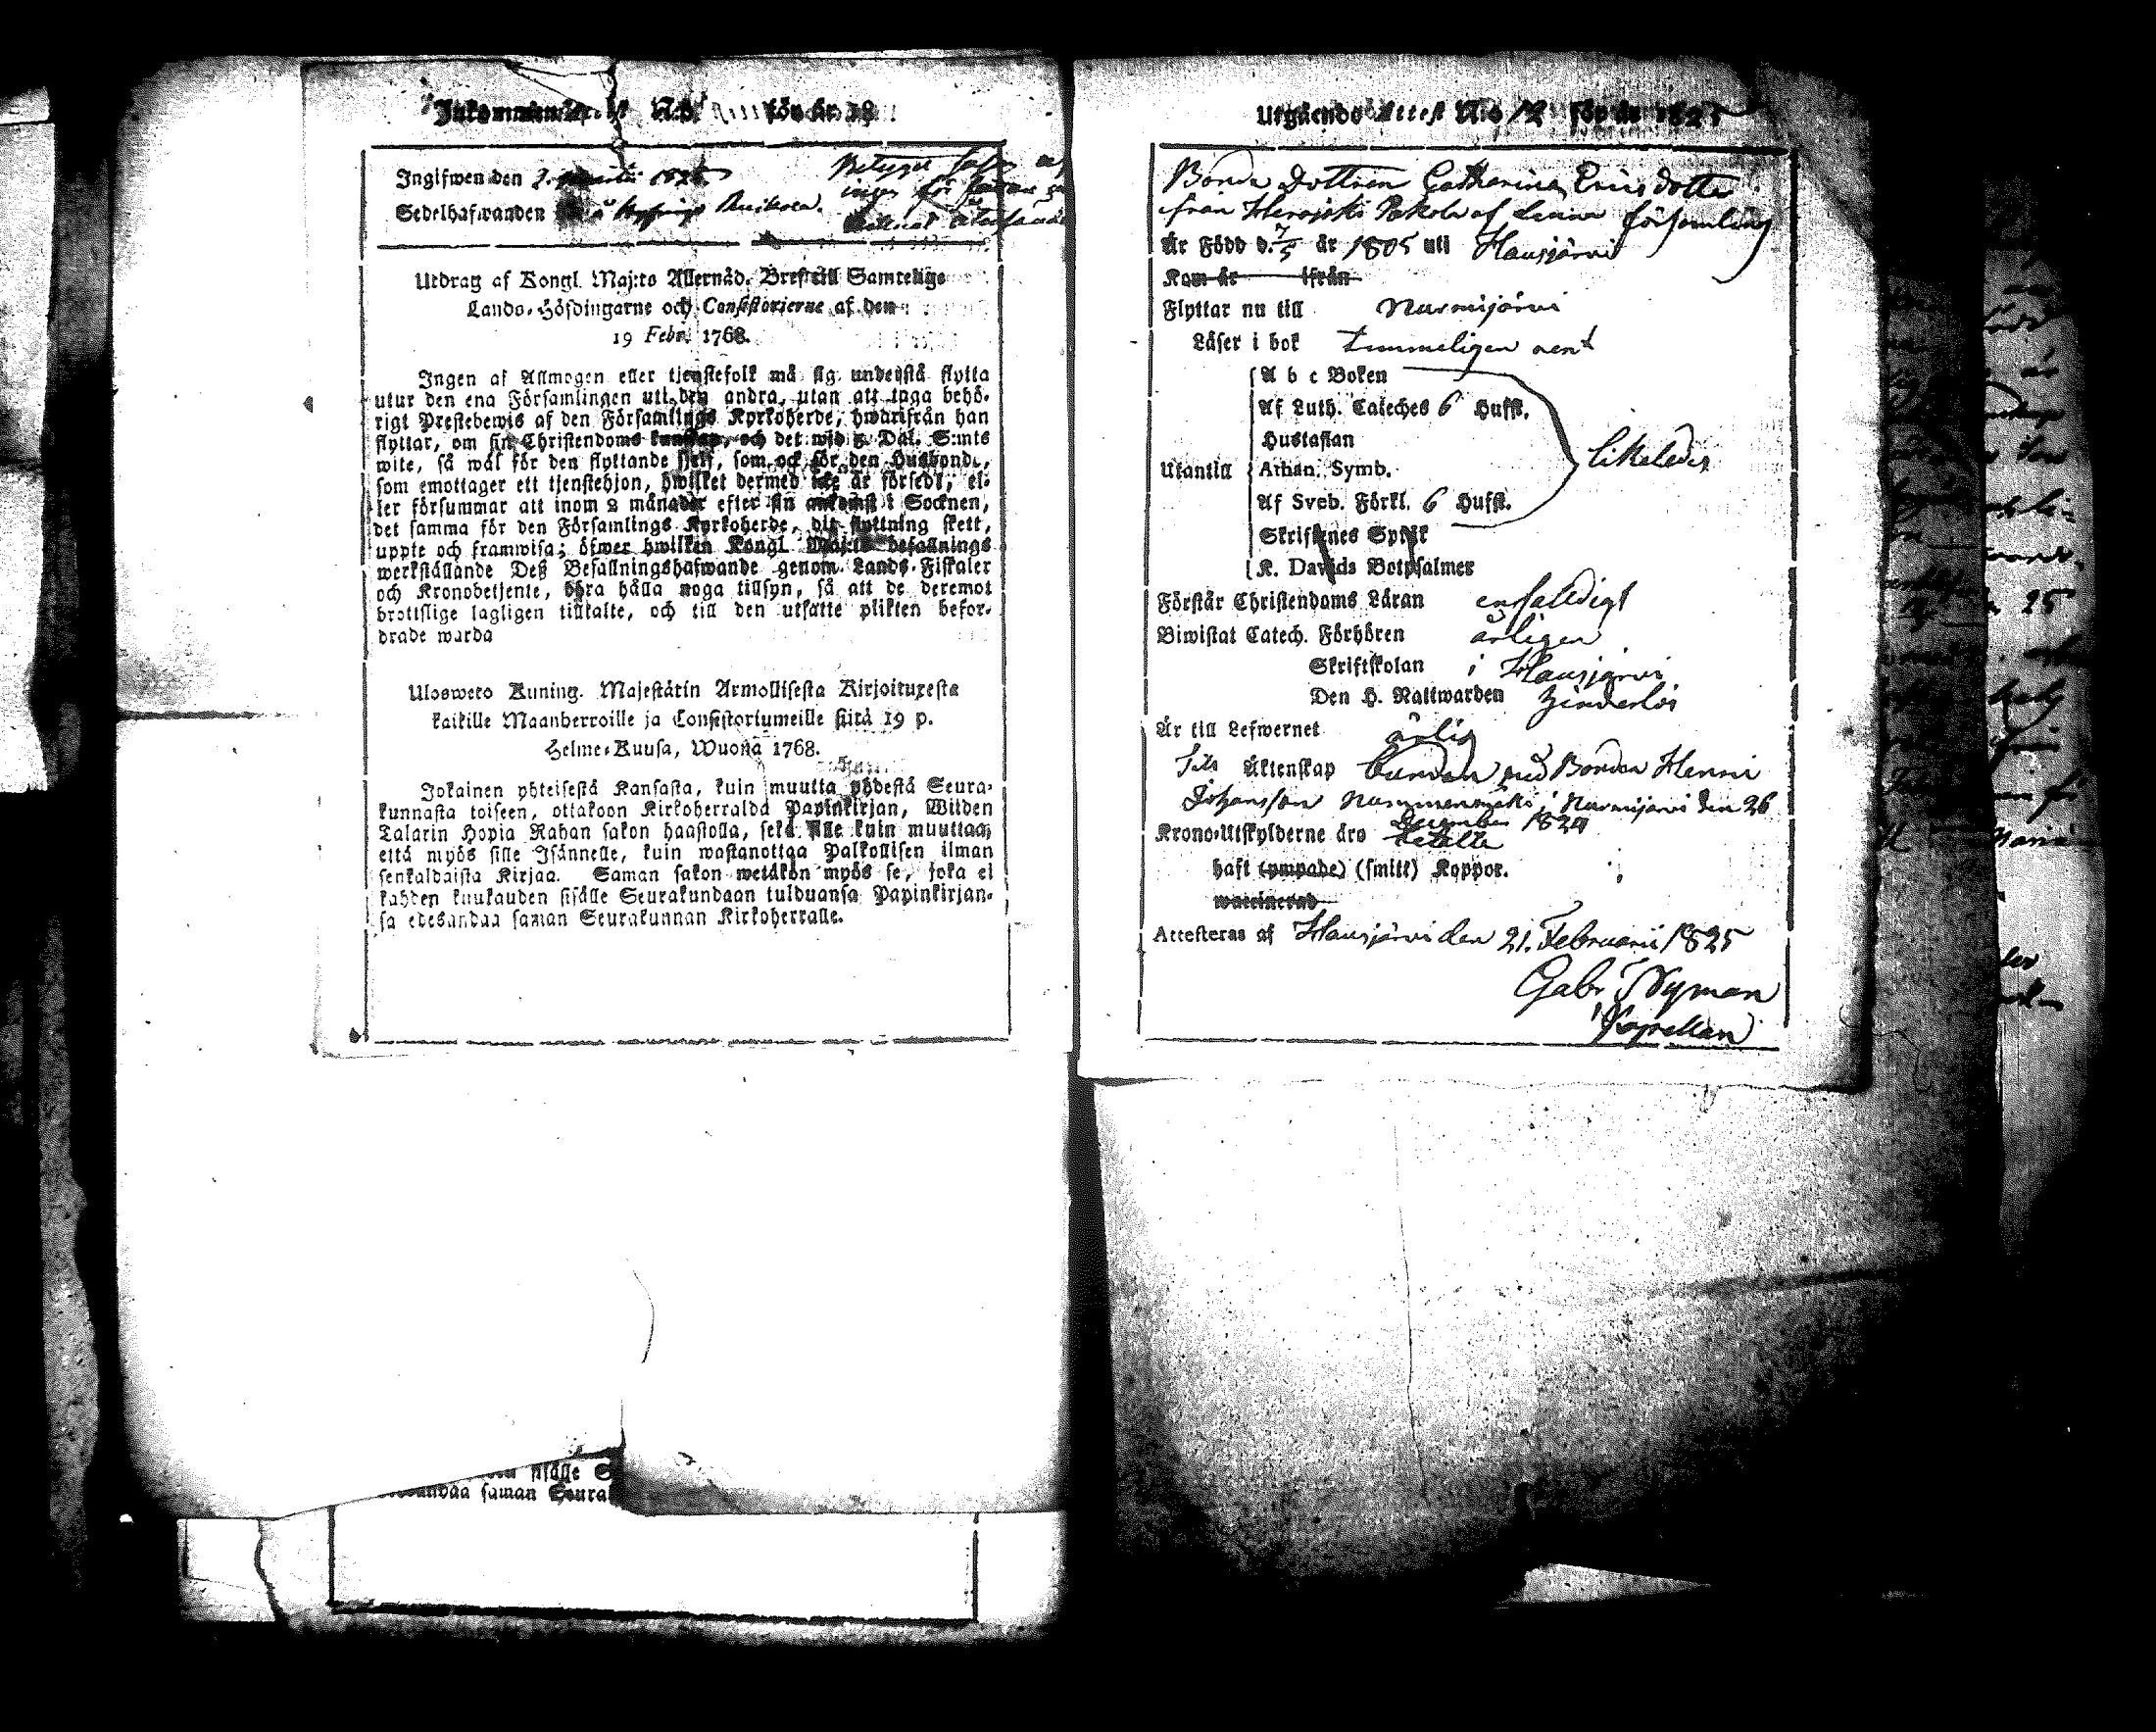 Inkommande N:o för år 18
Ingifwen den 1825
Sedelhafwanden
Utdrag af Kongl. Maj:ts Allernåd. Bref till Samtelige
Lands-Höfdingarne och Consistorierne af den
19 Febr. 1768.
Ingen af Allmogen eller tjenstefolk må sig understå flytta
utur den ena Församlingen uti den andra, utan att taga behö-
rigt Prestebewis af den Församlings Kyrkoherde, hwarifrån han
flyttar, om sin Christendoms kunskap, och det wid 3. Dal. S:mts
wite, så wäl för den flyttande sjelf, som ock för den Husbonde,
som emottager ett tjenstehjon, hwilket dermed icke är försedt, el-
ler försummar att inom 2 månader efter sin ankomst i Socknen,
det samma för den Församlings Kyrkoherde, dit flyttning skett,
uppte och framwisa; öfwer hwilken Kongl. Maj:ts befallnings
werkställande Deß Befallningshafwande genom Lands-Fiskaler
och Kronobetjente, böra hålla noga tillsyn, så att de deremot
brottslige lagligen tilltalte, och till den utsatte plikten befor-
drade warda
Ulosweto Kuning. Majestätin Armollisesta Kirjoituxesta
kaikille Maanherroille ja Consistoriumeille siitä 19 p.
Helme-Kuusa, Wuonna 1768.
Jokainen yhteisestä Kansasta, kuin muutta yhdestä Seura-
kunnasta toiseen, ottakoon Kirkoherralda Papinkirjan, Wiiden
Talarin Hopia Rahan sakon haastolla, sekä sille kuin muuttaa,
että myös sille Isännelle, kuin wastanottaa Palkollisen ilman
senkaldaista Kirjaa. Saman sakon wetäkön myös se, joka ei
kahden kuukauden sisälle Seurakundaan tulduansa Papinkirjan-
sa edesandaa saman Seurakunnan Kirkoherralle.
sisälle S
saman Seura
Utgående Attest N:o 12 för år 1825
Bonde Dottren Catharina Ericsdotter
från Herajoki Pakola af denna församling
Är Född d. 7/5 år 1805 uti Hausjärvi
Kom år ifrån
Flyttar nu till Nurmijärvi
Läser i bok Temmeligen rent
A b c Boken
Af Luth. Cateches 6 Hufst.
Hustaflan
Utantill Athan. Symb. likaledes
Af Sveb. Förkl. 6 Hufst.
Skriftenes Språk
K. Davids Botpsalmer
Förstår Christendoms Läran enfaldigt
Biwistat Catech. Förhören årligen
Skriftskolan i Hausjärvi
Den H. Nattwarden hinderlös
Är till Lefwernet ärlig
Äktenskap med Bonden Henric
Johansson Nummenmäki i Nurmijärvi den 26
December 1824
Krono-Utskylderne äro betalte
haft (ympade) (smitt) Koppor.
waccinerad
Attesteras af Hausjärvi den 21. Februarii 1825
Gabr Nyman
Kapellan